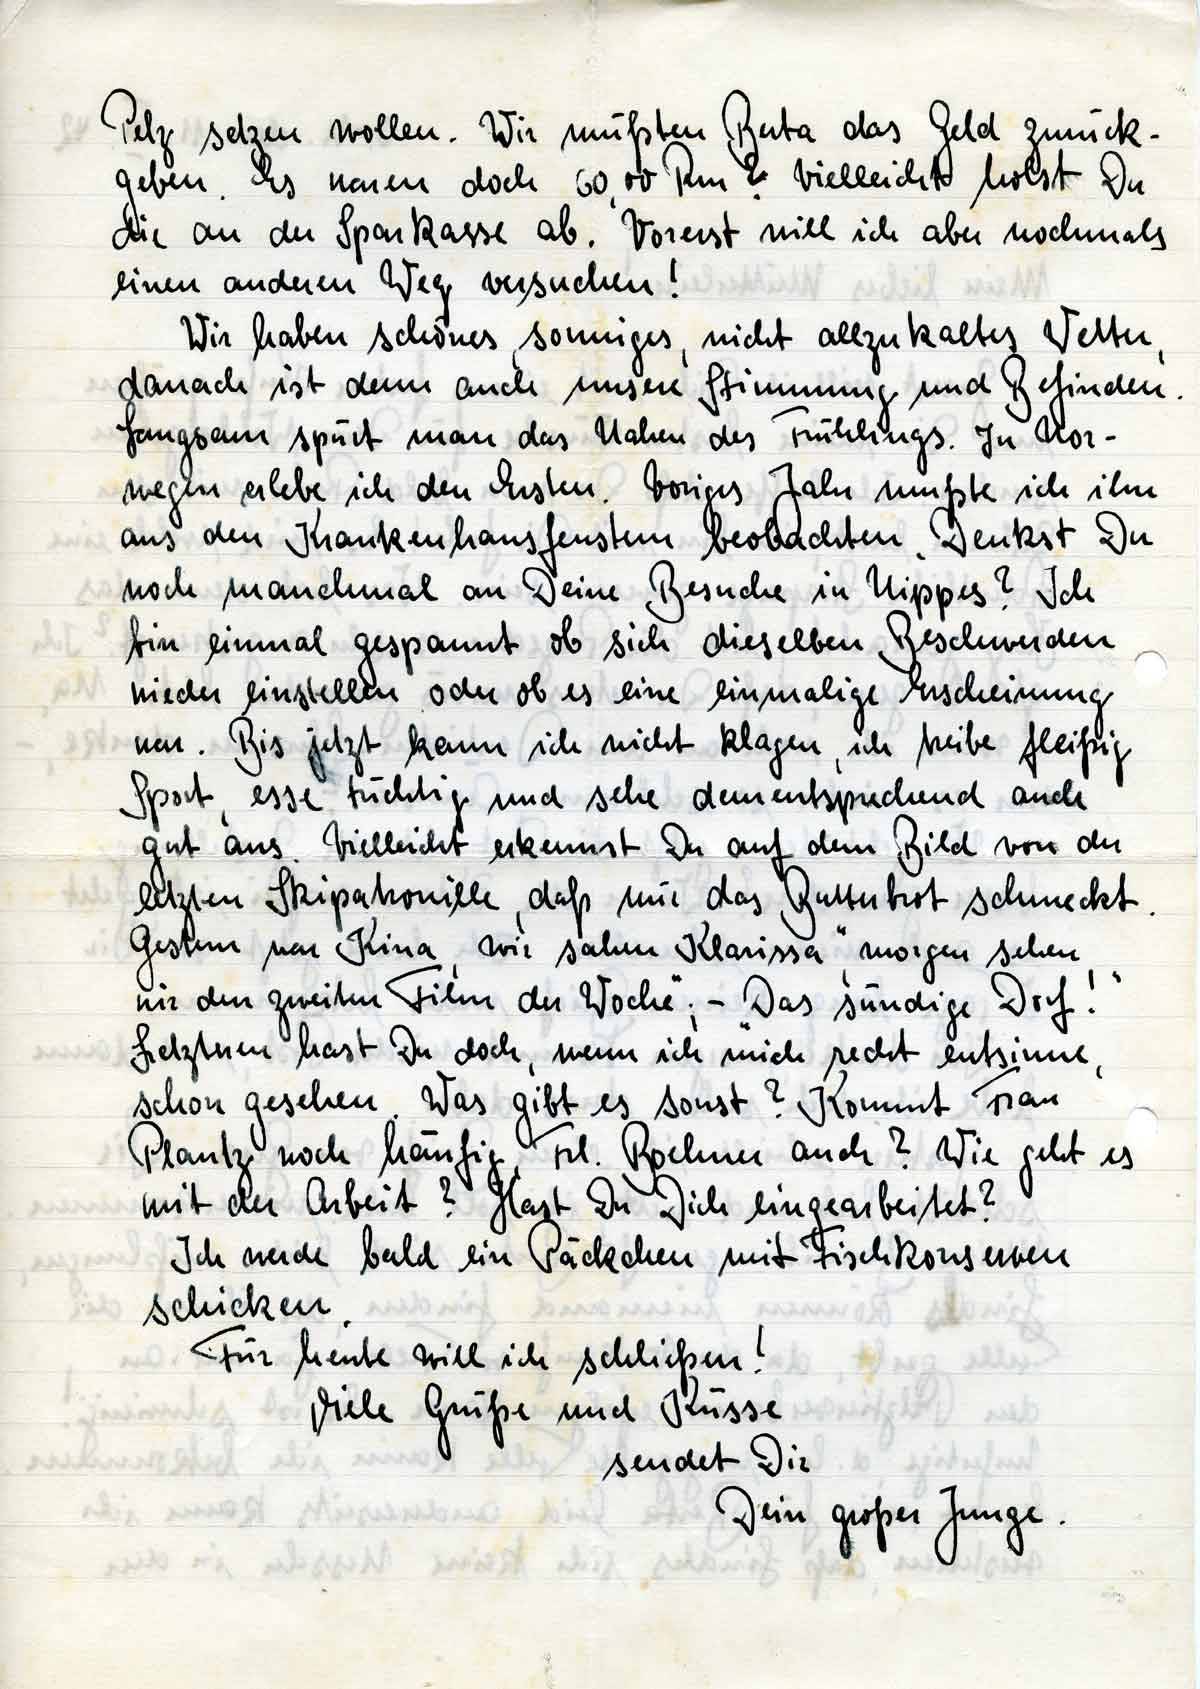 Pelz setzen wollen. Wir müßten Berta das Geld zurück-
geben. Es waren doch 60,00 Rm? Vielleicht holst Du
die an der Sparkasse ab. Vorerst will ich aber nochmals
einen anderen Weg versuchen!
Wir haben schönes, sonniges, nicht allzukaltes Wetter,
danach ist denn auch unsere Stimmung und Befinden.
Langsam spürt man das Nahen des Frühlings. In Nor-
wegen erlebe ich den Ersten. Voriges Jahr mußte ich ihn
aus den Krankenhausfenstern beobachten. Denkst Du
noch manchmal an Deine Besuche in Nippes? Ich
bin einmal gespannt ob sich dieselben Beschwerden
wieder einstellen oder ob es eine einmalige Erscheinung
war. Bis jetzt kann ich nicht klagen, ich treibe fleißig
Sport, esse tüchtig und sehe dementsprechend auch
gut aus. Vielleicht erkennst Du auf dem Bild von der
letzten Skipatrouille, daß mir das Butterbrot schmeckt.
Gestern war Kino, wir sahen „Klarissa“, morgen sehen
wir den zweiten „Film der Woche“; – „Das sündige Dorf!“
Letzteren hast Du doch, wenn ich mich recht entsinne,
schon gesehen. Was gibt es sonst? Kommt Frau
Plantz noch häufig, Frl. Boehmer auch? Wie geht es
mit der Arbeit? Hast Du Dich eingearbeitet?
Ich werde bald ein Päckchen mit Fischkonserven
schicken.
Für heute will ich schließen!
Viele Grüße und Küsse
sendet Dir
Dein großer Junge.